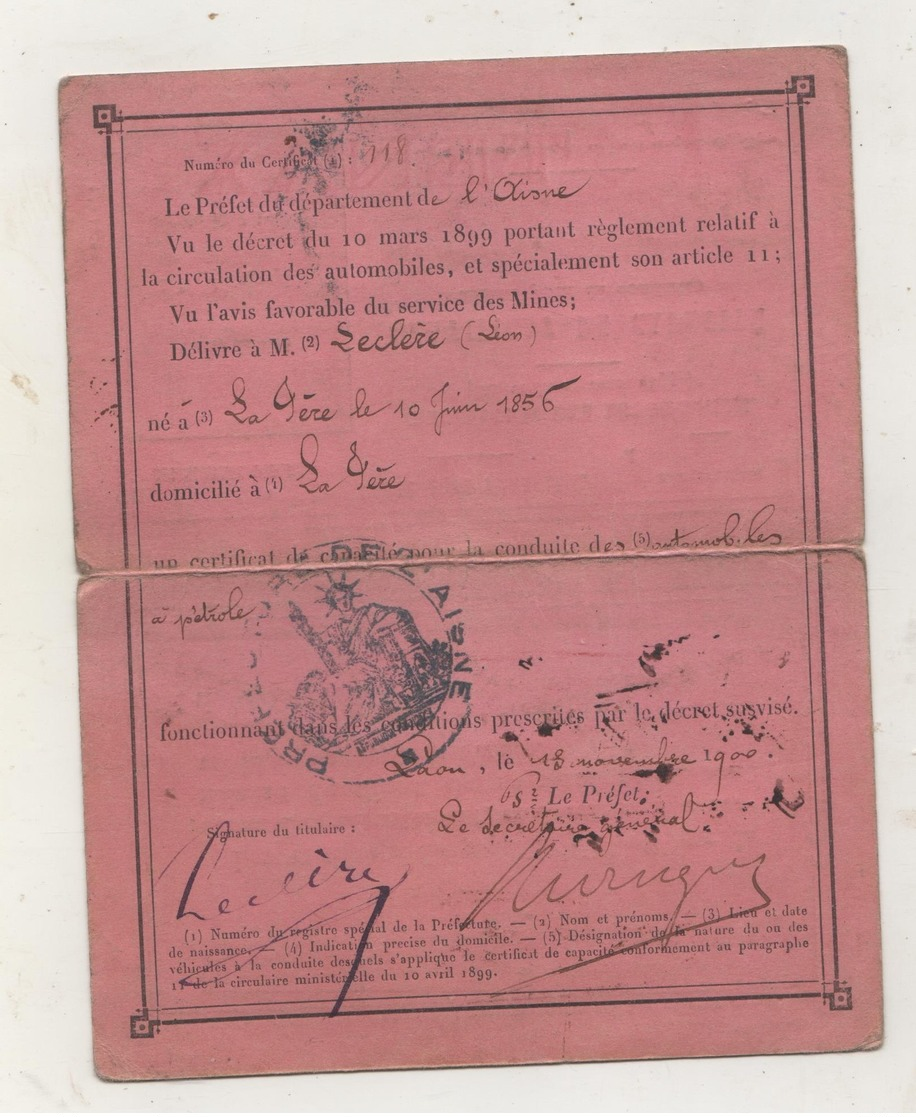 Numéro du Certificat (1) : 118
Le Préfet du département de l'Aisne
Vu le décret du 10 mars 1899 portant règlement relatif à
la circulation des automobiles, et spécialement son article 11;
Vu l'avis favorable du service des Mines;
Délivre à M. (2) Leclère (Léon)
né à (3) La Fère le 10 Juin 1856
domicilié à (4) La Fère
un certificat de capacité pour la conduite des (5) automobiles
à pétrole
PRÉFECTURE DE L'AISNE
fonctionnant dans les conditions prescrites par le décret susvisé.
Laon, le novembre 1900.
Le Préfet:
Le secrétaire général.
Signature du titulaire :
Leclère
(1) Numéro du registre spécial de la Préfecture. — (2) Nom et prénoms. — (3) Lieu et date
de naissance. — (4) Indication precise du domicile. — (5) Désignation de la nature du ou des
véhicules à la conduite desquels s'applique le certificat de capacité conformement au paragraphe
11 de la circulaire ministérielle du 10 avril 1899.